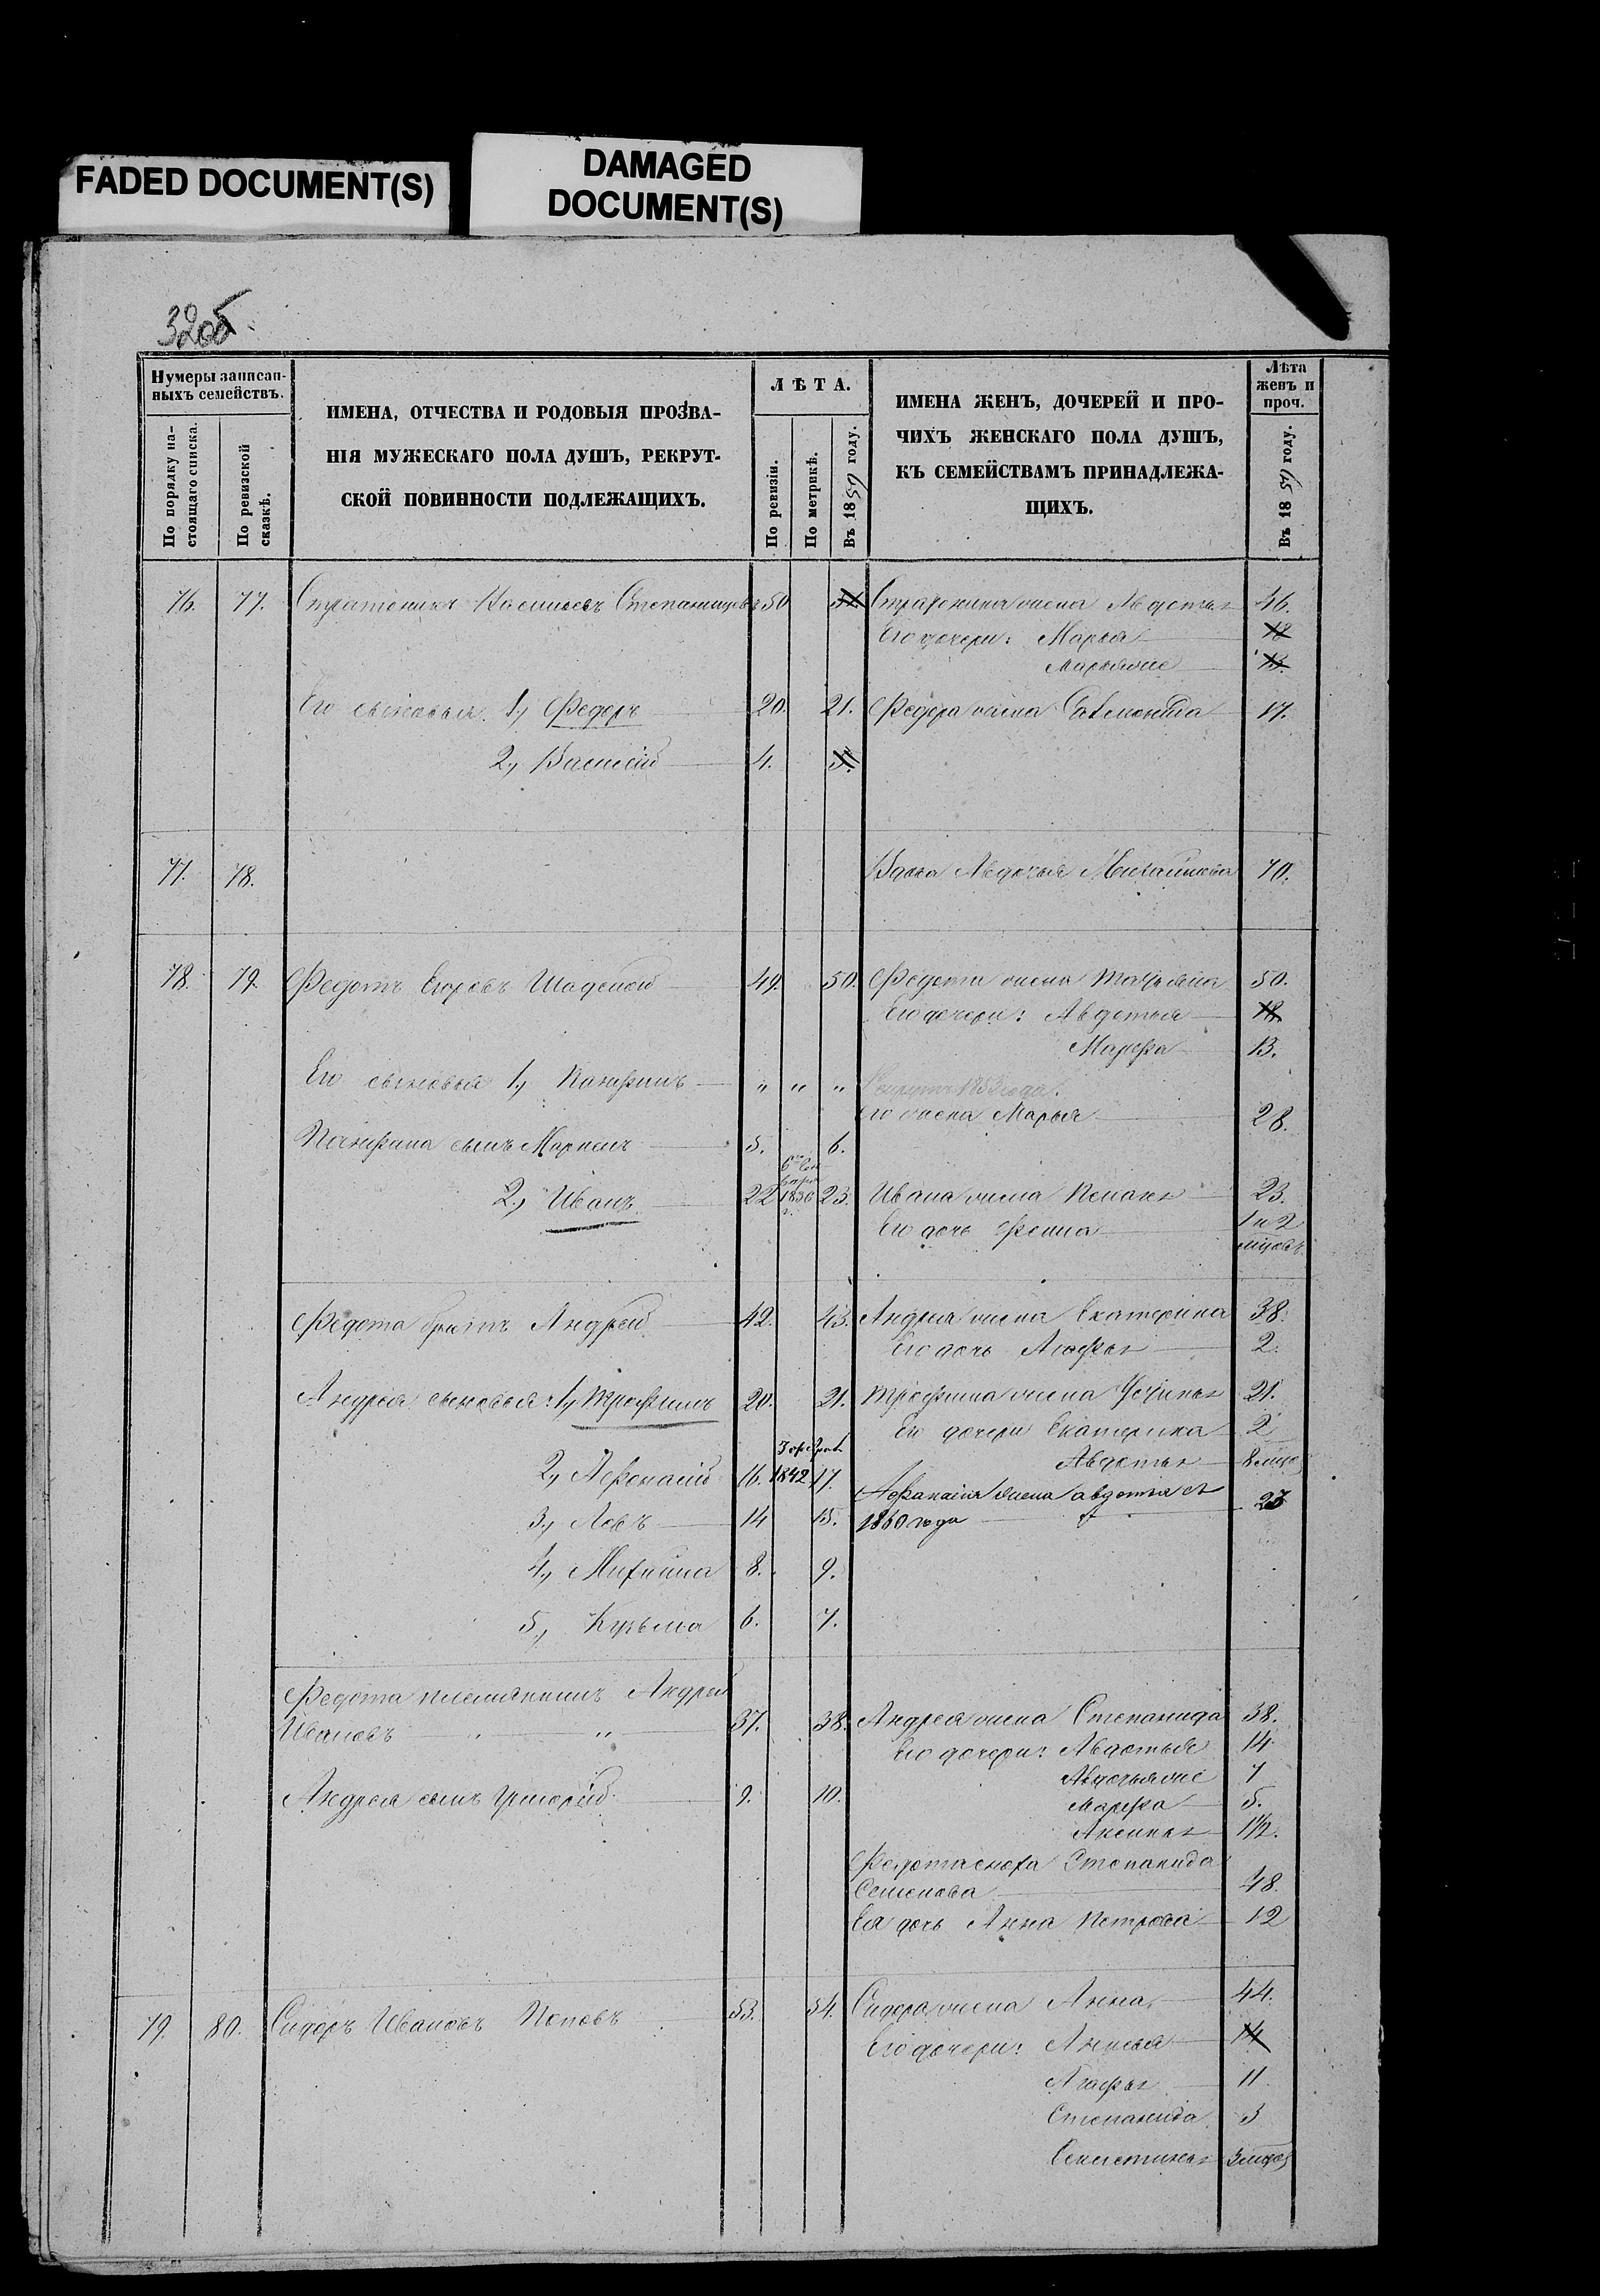 FADED DOCUMENT(S)
DAMAGED
DOCUMENT(S)
320об.
Нумеры записан-
ныхъ семействъ.
По порядку на-
стоящаго списка.
По ревизской
сказкѣ.
ИМЕНА, ОТЧЕСТВА И РОДОВЫЯ ПРОЗВА-
НІЯ МУЖЕСКАГО ПОЛА ДУШЪ, РЕКРУТ-
СКОЙ ПОВИННОСТИ ПОДЛЕЖАЩИХЪ.
ЛѢТА.
По ревизіи.
По метрикѣ.
Въ 1859 году.
ИМЕНА ЖЕНЪ, ДОЧЕРЕЙ И ПРО-
ЧИХЪ ЖЕНСКАГО ПОЛА ДУШЪ,
КЪ СЕМЕЙСТВАМЪ ПРИНАДЛЕЖА-
ЩИХЪ.
Лѣта
женъ и
проч.
Въ 1859 году.
76. 77. Васильевъ 50 жена Авдотья 46.
Его дочери: Марья 18
Марья же 13.
Его сыновья: 1, Федоръ 20. 21. Федора жена 17.
2, Василій 4. 5.
77. 78. Вдова Авдотья Михайлова 70.
78. 79. Федотъ Егоровъ 49. 50. Федота жена Татьяна 50.
Его дочери: Авдотья 18.
Марфа 13.
Его сыновья 1, Панфилъ " " " Рекрутъ года.
его жена Марья 28.
Панфила сынъ 5. 6.
2, Иванъ 22 1836 23. Ивана жена 23.
Его дочь 1 и 2
мѣсяцовъ
Федота братъ Андрей 42. 43. Андрея жена Екатерина 38.
Его дочь Агафья 2.
Андрея сыновья: 1, Трофимъ 20. 21. Трофима жена Устинья 21.
Его дочери Екатерина 2
Авдотья 8 мѣся
2, Афонасій 16. 1842 17. Афанасія жена Авдотья съ
1860 года
3, Левъ 14 15.
4, Михаила 8. 9.
5, Кузьма 6. 7.
Федота племянникъ Андрей
Ивановъ " " 37. 38. Андрея жена Степанида 38.
Его дочери: Авдотья 14
Авдотья же 7
Марфа 5.
Аксинья 1½.
Андрея сынъ Григорій 9. 10.
Федота сноха Степанида
Семенова 48
Ея дочь Анна Петрова 12
79. 80. Сидоръ Ивановъ Поповъ 53. 54. Сидора жена Анна 44.
Его дочери: 14
Агафья 11
Степанида 3
3 мѣся